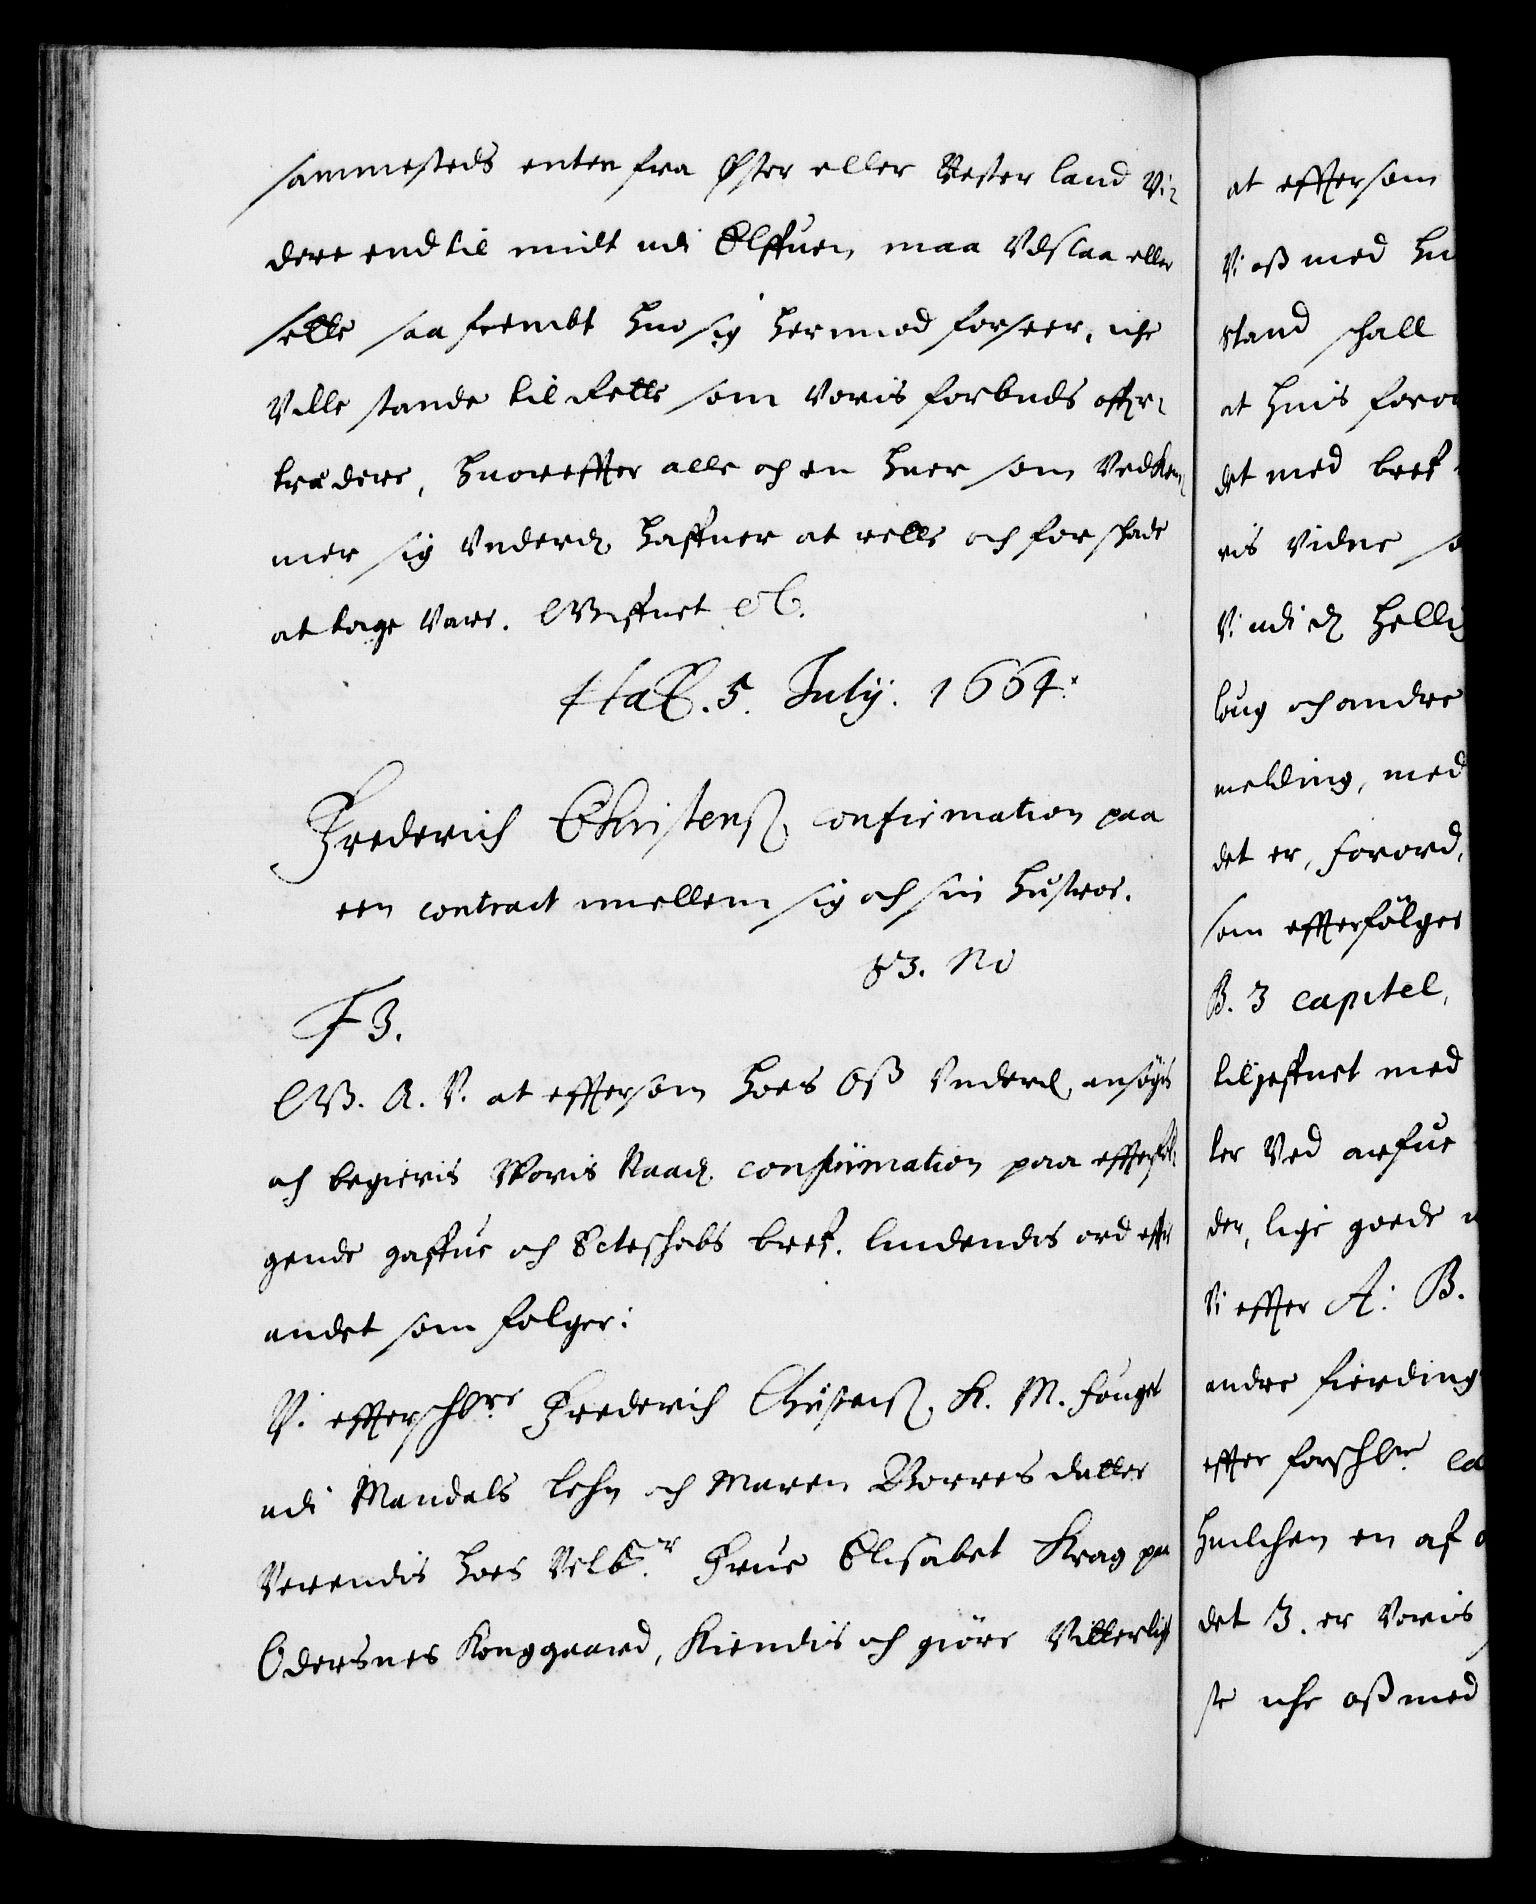 sammesteds enten fra Øster eller Vester land vi-
dere end til midt udi Elffuen maa Udslaa eller
sette saa frembt hno sig hermod forseer, iche
Ville stande til Rette som Voris forbuds offer-
trædere, huorefter alle och en huer som Vedkom-
mer sig Underd. haffuer at rette och for schade
at tage Vare. Giffuet etc.
Haf. 5. July. 1664.
Frederich Christens. confirmation paa
een contract imellem sig och sin hustroe.
F 3.
G. A. V. at eftersom hoes Oss Underd. ansøgis
och begieris Voris Naad. confirmation paa efterføl-
gende gaffue och Ecteschabs bref. liudendis ord effter
andet som følger:
Vi effterschr.ne Frederich Christens. K. M. fouget
udi Mandals Lehn och Maren Borresdatter
Verendis hoes Velb.r Frue Elisabet Krag paa
Odersnes Konggaard, Kiendis och giøre Vitterligt
at eftersom
Vi oss med
stand schall
at huis
det med bref
ris Vidne
Vi udi d. helli
loug och andre
melding, med
det er, forord,
som effterfølger
B. 3 capitel,
tilgeffuet med
ler Ved arfue
der, lige goede
Vi effter A: B.
andre fierding
effter forschr.ne
huilchen en af
det 3. er Voris
te iche oss med